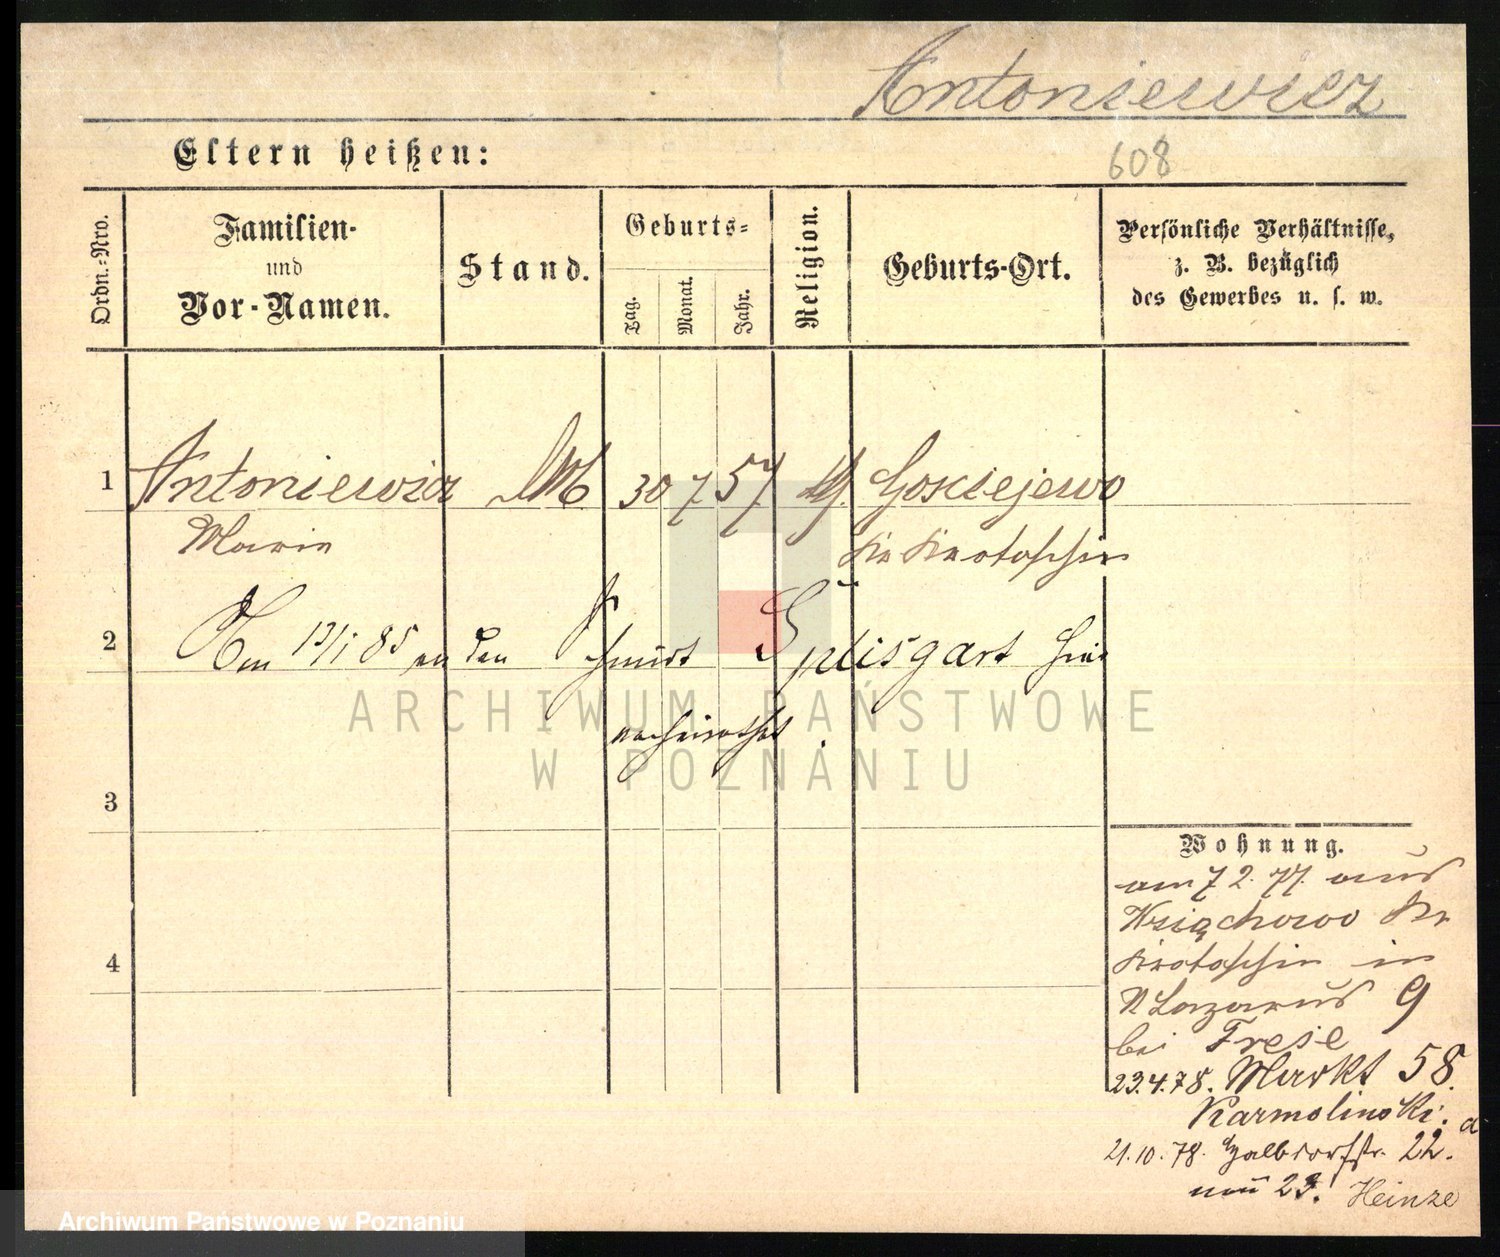 Antoniewicz
608
Eltern heißen:
Ordn.-Nro.
Familien-
und
Vor-Namen.
Stand.
Geburts-
Tag.
Monat.
Jahr.
Religion.
Geburts-Ort.
Persönliche Verhältnisse,
z. B. bezüglich
des Gewerbes u. s. w.
1 Antoniewicz 30 7 57 Gosciejewo
Marie Kr Krotoschin
2 Am 13/1 85 an den Splisgart hier
verheirathet.
3
4
Wohnung.
am 7 2. 77. aus
Wziąchowo Kr
Krotoschin in
St Lazarus 9
bei Frese
23.4.78. Markt 58.
Karmolinski. a
21.10.78. Halbdorfstr. 22.
neu 23. Heinze
ARCHIWUM PAŃSTWOWE
W POZNANIU
Archiwum Państwowe w Poznaniu